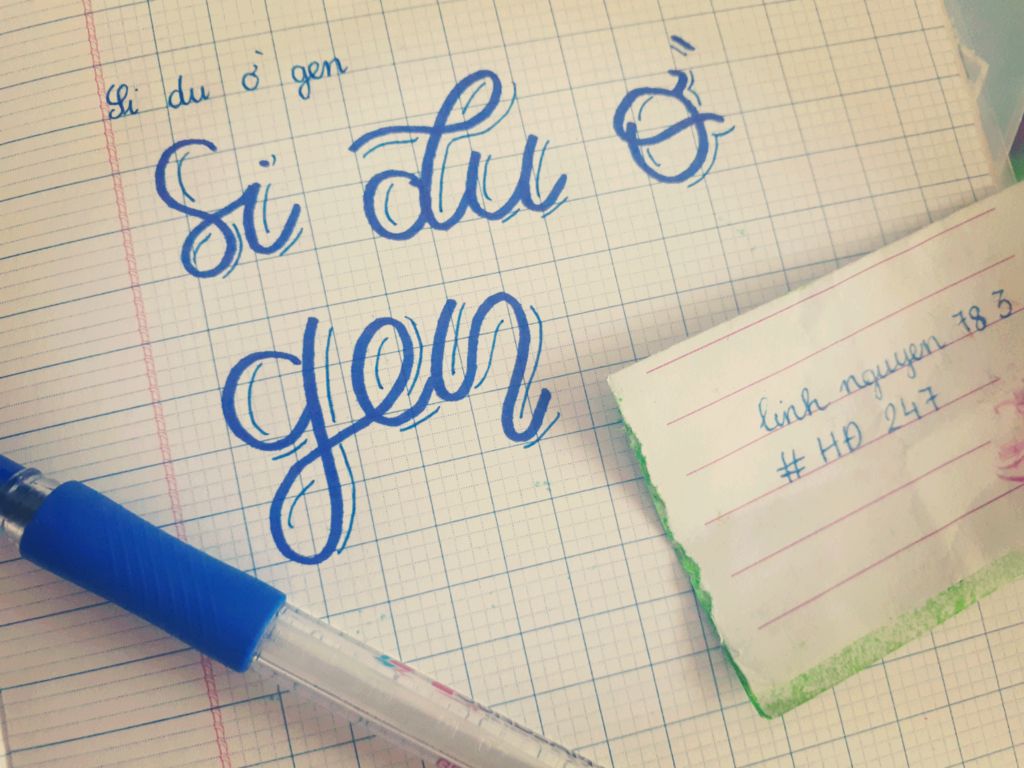 Si du ở gen
Si du ờ
gen
linh nguyen 783
# HĐ 247